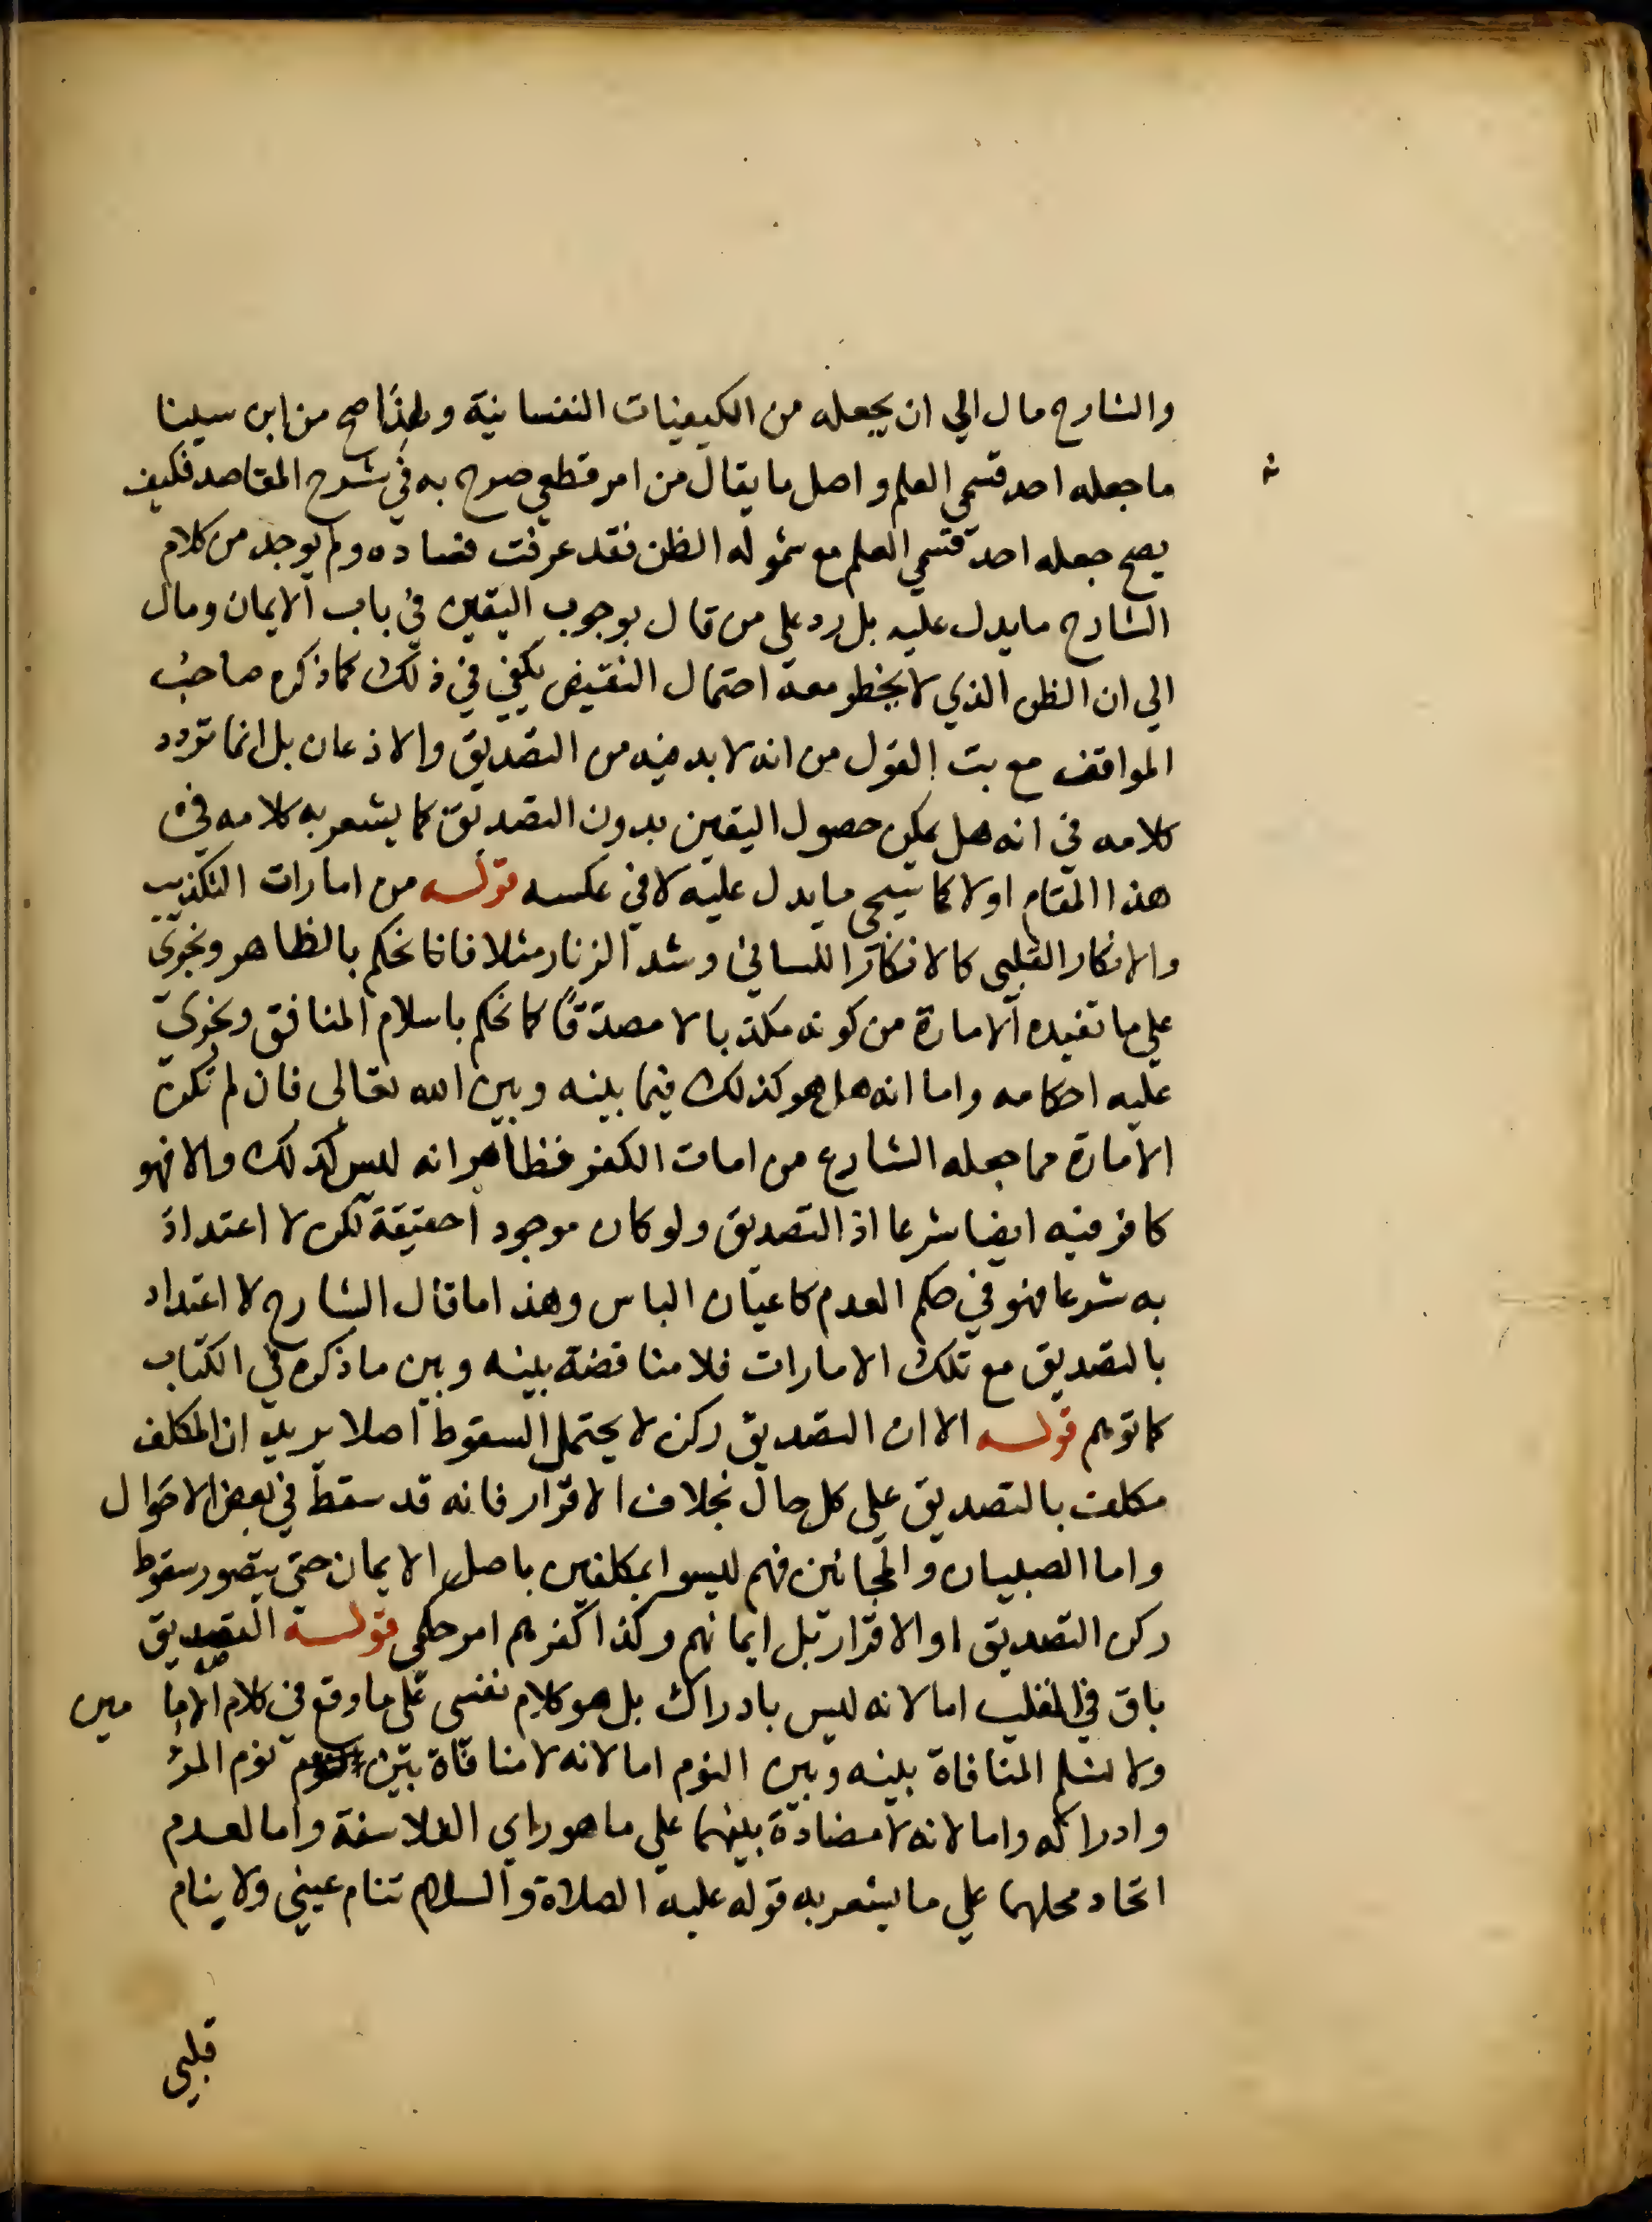 والشارح مال الي ان يجعله من الكيفيات النفسانية ولهذا صح من ابن سينا
ما جعله احد قسمي العلم واصل ما يقال من امر قطعي صرح به في شرح المقاصد فكيف
يصح جعله احد قسمي العلم مع شموله الظن فقد عرفت فساده ولم يوجد من كلام
الشارح ما يدل عليه بل رد على من قال بوجوب اليقين في باب الايمان ومال
الي ان الظن الذي لا يخطر معه احتمال النقيض يكفي في ذلك كما ذكره صاحب
المواقف مع بت القول من انه لا بد فيه من التصديق والاذعان بل انما تردد
كلامه في انه هل يمكن حصول اليقين بدون التصديق كما يشعر به كلامه في
هذا المقام اولا كما سيجى ما يدل عليه لا في عكسه قوله من امارات التكذيب
والانكار القلبي كالانكار اللساني وشد الزنار مثلا فانا نحكم بالظاهر ونجري
علي ما تفيده الامارة من كونه مكذبا لا مصدقا كما نحكم باسلام المنافق ونجري
عليه احكامه واما انه هل هو كذلك فيما بينه وبين الله تعالى فان لم تكن
الامارة مما جعله الشارع من امات الكفر فظاهر انه ليس كذلك والا فهو
كافر فيه ايضا شرعا اذ التصديق ولو كان موجودا حقيقة لكن لا اعتداد
به شرعا فهو في حكم العدم كاعيان الباس وهذا ما قال الشارح لا اعتداد
بالتصديق مع تلك الامارات فلا مناقضة بينه وبين ما ذكره في الكتاب
كما توهم قوله الا ان التصديق ركن لا يحتمل السقوط اصلا يريد ان المكلف
مكلف بالتصديق علي كل حال بخلاف الاقرار فانه قد سقط في بعض الاحوال
واما الصبيان والمجانين فهم ليسوا بمكلفين باصل الايمان حتى يتصور سقوط
ركن التصديق او الاقرار بل ايمانهم وكذا كفرهم امر حكمي قوله التصديق
باق في القلب اما لانه ليس بادراك بل هو كلام نفسي علي ما وقع في كلام الاما مين
ولا نسلم المنافاة بينه وبين النوم اما لانه لا منافاة بين نوم المرء
وادراكه واما لانه لا مضادة بينهما علي ما هو راي الفلاسفة واما لعدم
اتحاد محلهما علي ما يشعر به قوله عليه الصلاة والسلام تنام عيني ولا ينام
قلبي